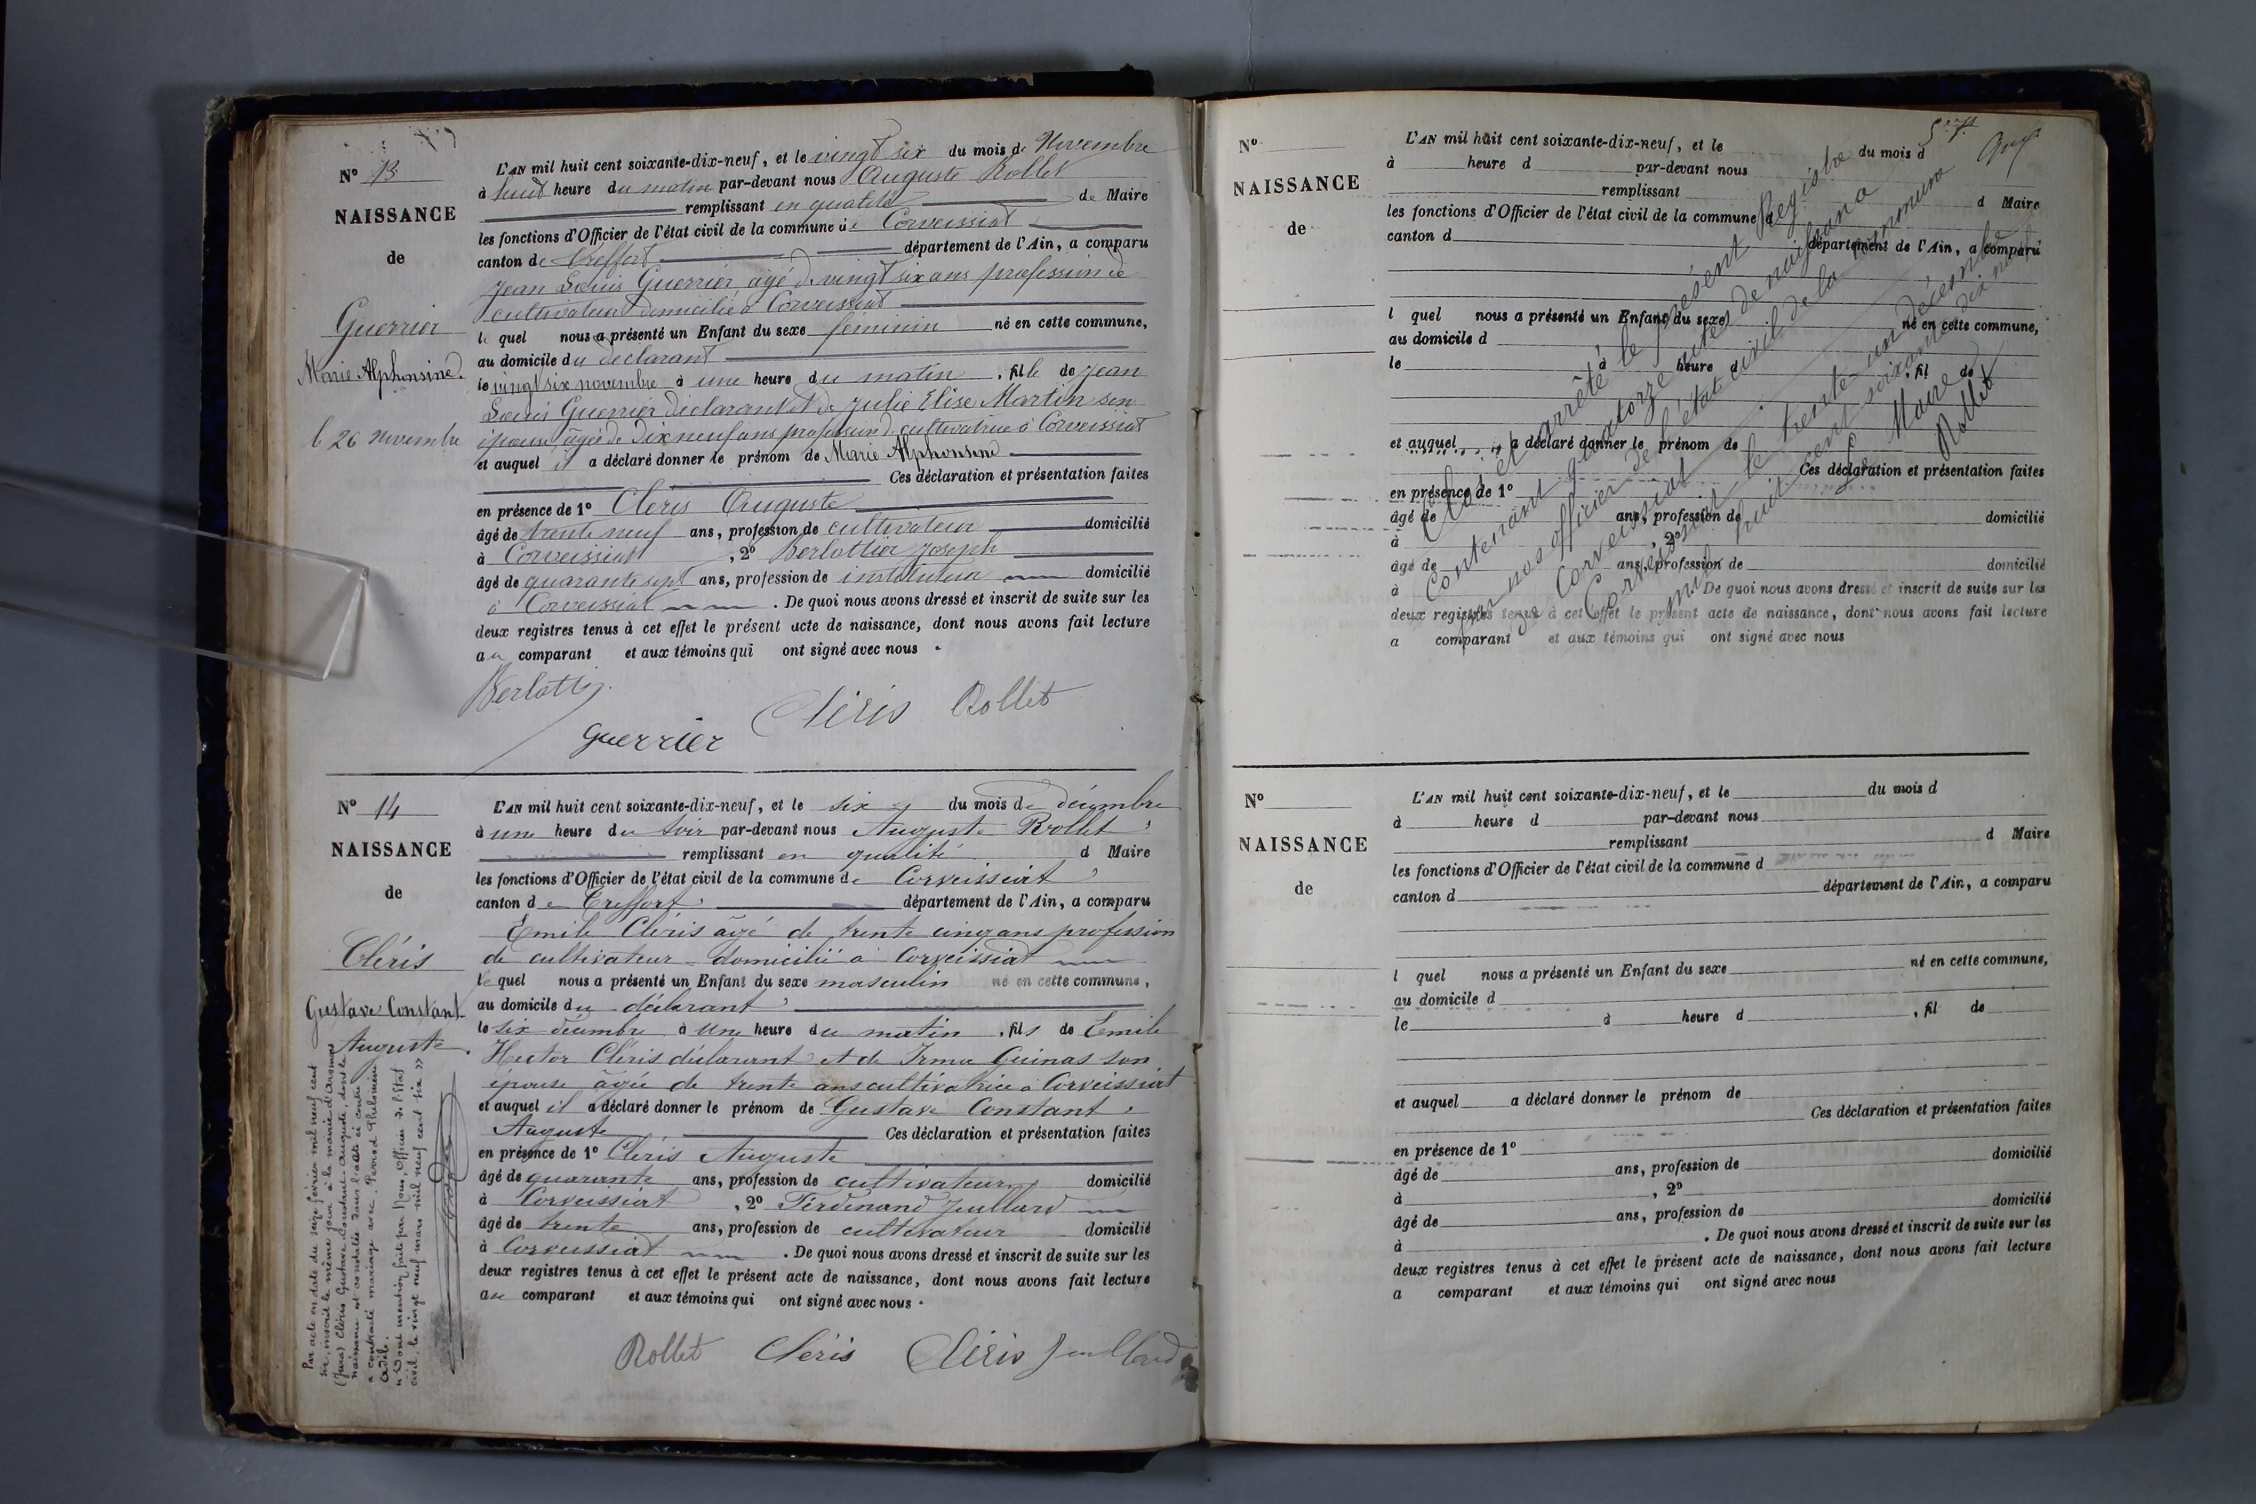 N° 13
NAISSANCE
de
Guerrier
Marie Alphonsine
le 26 novembre
L'AN mil huit cent soixante-dix-neuf, et le vingt six du mois de Novembre
à huit heure du matin par-devant nous Auguste Rollet
remplissant en qualité de Maire
les fonctions d'Officier de l'état civil de la commune de Corveissiat
canton de Treffort département de l'Ain, a comparu
Jean Louis Guerrier âgé de vingt six ans profession de
cultivateur domicilié à Corveissiat
le quel nous a présenté un Enfant du sexe féminin né en cette commune,
au domicile du déclarant
le vingt six novembre à une heure du matin, fille de Jean
Louis Guerrier déclarant et de Julie Elise Martin son
épouse âgée de dix neuf ans profession de cultivatrice à Corveissiat
et auquel il a déclaré donner le prénom de Marie Alphonsine
Ces déclaration et présentation faites
en présence de 1° Cléris Auguste
âgé de trente neuf ans, profession de cultivateur domicilié
à Corveissiat, 2° Berlottier Joseph
âgé de quarante sept ans, profession de instituteur domicilié
à Corveissiat. De quoi nous avons dressé et inscrit de suite sur les
deux registres tenus à cet effet le présent acte de naissance, dont nous avons fait lecture
au comparant et aux témoins qui ont signé avec nous.
Cléris Rollet
Guerrier
N° 14
NAISSANCE
de
Cléris
Gustave Constant
Auguste
L'AN mil huit cent soixante-dix-neuf, et le six du mois de décembre
à une heure du soir par-devant nous Auguste Rollet
remplissant en qualité d Maire
les fonctions d'Officier de l'état civil de la commune de Corveissiat
canton de Treffort département de l'Ain, a comparu
Emile Cléris âgé de trente cinq ans profession
de cultivateur domicilié à Corveissiat
le quel nous a présenté un Enfant du sexe masculin né en cette commune,
au domicile du déclarant
le six décembre à une heure du matin, fils de Emile
Hector Cléris déclarant et de Irma Guinas son
épouse âgée de trente ans cultivatrice à Corveissiat
et auquel il a déclaré donner le prénom de Gustave Constant
Auguste Ces déclaration et présentation faites
en présence de 1° Cléris Auguste
âgé de quarante ans, profession de cultivateur domicilié
à Corveissiat, 2° Ferdinand Juillard
âgé de trente ans, profession de cultivateur domicilié
à Corveissiat. De quoi nous avons dressé et inscrit de suite sur les
deux registres tenus à cet effet le présent acte de naissance, dont nous avons fait lecture
au comparant et aux témoins qui ont signé avec nous.
Rollet Cléris Cléris Juillard
Par acte en date du seize février mil neuf cent
six, inscrit le même jour à la mairie d'
(Jura) Cléris Gustave Constant Auguste, dont la
naissance est constatée dans l'acte ci contre
a contracté mariage avec Perrod Philomène
Adèle.
Dont mention faite par Nous, officier de l'Etat
civil, le vingt neuf mars mil neuf cent six »
N°
NAISSANCE
de
L'AN mil huit cent soixante-dix-neuf, et le du mois d
à heure d par-devant nous
remplissant d Maire
les fonctions d'Officier de l'état civil de la commune d
canton d département de l'Ain, a comparu
l quel nous a présenté un Enfant du sexe né en cette commune,
au domicile d
le à heure d, fil de
et auquel a déclaré donner le prénom de
Ces déclaration et présentation faites
en présence de 1°
âgé de ans, profession de domicilié
à, 2°
âgé de ans, profession de domicilié
à De quoi nous avons dressé et inscrit de suite sur les
deux registres tenus à cet effet le présent acte de naissance, dont nous avons fait lecture
a comparant et aux témoins qui ont signé avec nous
Clos et arrêté le présent Registre
contenant quatorze actes de naissance
par nous officier de l'état civil de la commune
de Corveissiat
Corveissiat le trente-un décembre
mil huit cent soixante dix neuf
Le Maire
Rollet
N°
NAISSANCE
de
L'AN mil huit cent soixante-dix-neuf, et le du mois d
à heure d par-devant nous
remplissant d Maire
les fonctions d'Officier de l'état civil de la commune d
canton d département de l'Ain, a comparu
l quel nous a présenté un Enfant du sexe né en cette commune,
au domicile d
le à heure d, fil de
et auquel a déclaré donner le prénom de
Ces déclaration et présentation faites
en présence de 1°
âgé de ans, profession de domicilié
à, 2°
âgé de ans, profession de domicilié
à. De quoi nous avons dressé et inscrit de suite sur les
deux registres tenus à cet effet le présent acte de naissance, dont nous avons fait lecture
a comparant et aux témoins qui ont signé avec nous